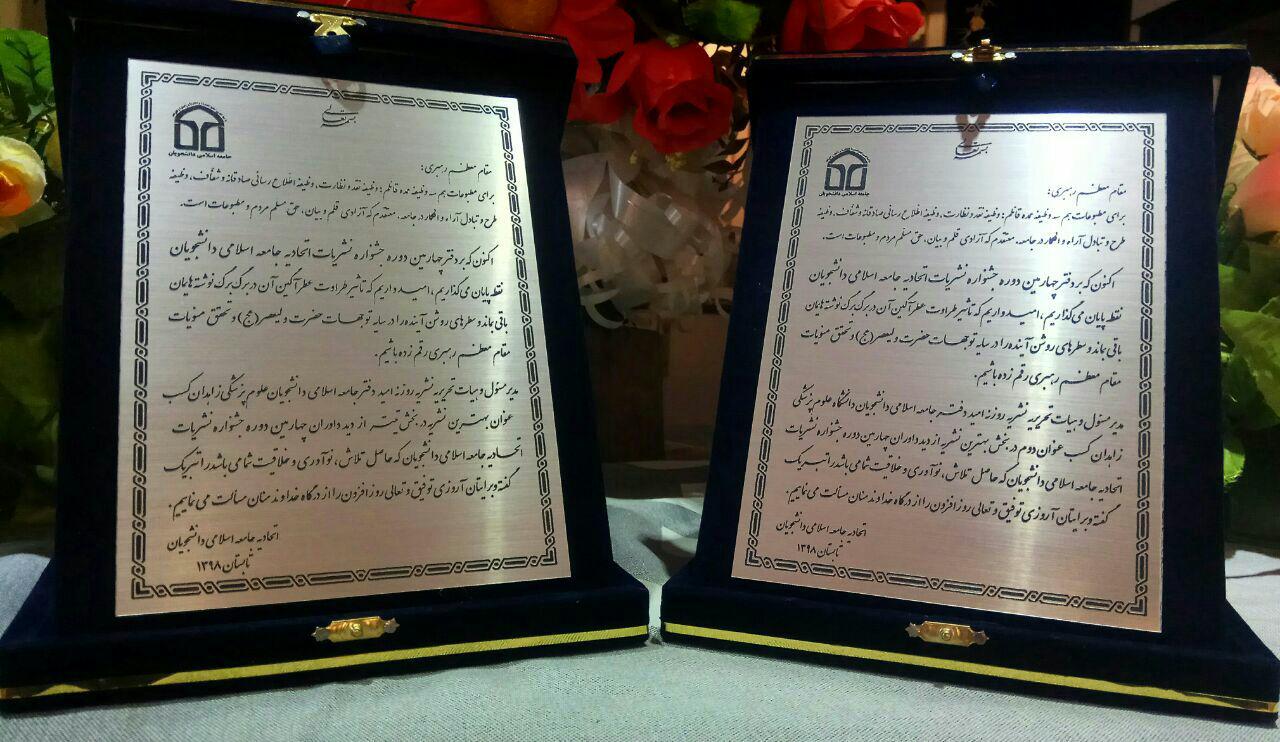 بسمه تعالی
جامعه اسلامی دانشجویان
مقام معظم رهبری:
برای مطبوعات هم سه وظیفه عمده قائلم: وظیفه نقد و نظارت، وظیفه اطلاع رسانی صادقانه و شفّاف، وظیفه
طرح و تبادل آراء و افکار در جامعه. معتقدم که آزادی قلم و بیان، حق مسلم مردم و مطبوعات است.
اکنون که بر دفتر چهارمین دوره جشنواره نشریات اتحادیه جامعه اسلامی دانشجویان
نقطه پایان می گذاریم، امیدواریم که تأثیر طراوت عطرآگین آن در برگ برگ نوشته هایمان
باقی بماند و سطرهای روشن آینده را در سایه توجهات حضرت ولیعصر(عج) و تحقق منویات
مقام معظم رهبری رقم زده باشیم.
مدیر مسئول و هیات تحریریه نشریه روزنه امید دفتر جامعه اسلامی دانشجویان علوم پزشکی زاهدان کسب
عنوان بهترین نشریه در بخش تیتر از دید داوران چهارمین دوره جشنواره نشریات
اتحادیه جامعه اسلامی دانشجویان که حاصل تلاش، نوآوری و خلاقیت شما می باشد را تبریک
گفته و برایتان آرزوی توفیق و تعالی روز افزون را از درگاه خداوند منان مسألت می نماییم.
اتحادیه جامعه اسلامی دانشجویان
تابستان ۱۳۹۸
بسمه تعالی
جامعه اسلامی دانشجویان
مقام معظم رهبری:
برای مطبوعات هم سه وظیفه عمده قائلم: وظیفه نقد و نظارت، وظیفه اطلاع رسانی صادقانه و شفّاف، وظیفه
طرح و تبادل آراء و افکار در جامعه. معتقدم که آزادی قلم و بیان، حق مسلم مردم و مطبوعات است.
اکنون که بر دفتر چهارمین دوره جشنواره نشریات اتحادیه جامعه اسلامی دانشجویان
نقطه پایان می گذاریم، امیدواریم که تأثیر طراوت عطرآگین آن در برگ برگ نوشته هایمان
باقی بماند و سطرهای روشن آینده را در سایه توجهات حضرت ولیعصر(عج) و تحقق منویات
مقام معظم رهبری رقم زده باشیم.
مدیر مسئول و هیات تحریریه نشریه روزنه امید دفتر جامعه اسلامی دانشجویان دانشگاه علوم پزشکی
زاهدان کسب عنوان دوم در بخش بهترین نشریه از دید داوران چهارمین دوره جشنواره نشریات
اتحادیه جامعه اسلامی دانشجویان که حاصل تلاش، نوآوری و خلاقیت شما می باشد را تبریک
گفته و برایتان آرزوی توفیق و تعالی روز افزون را از درگاه خداوند منان مسألت می نماییم.
اتحادیه جامعه اسلامی دانشجویان
تابستان ۱۳۹۸